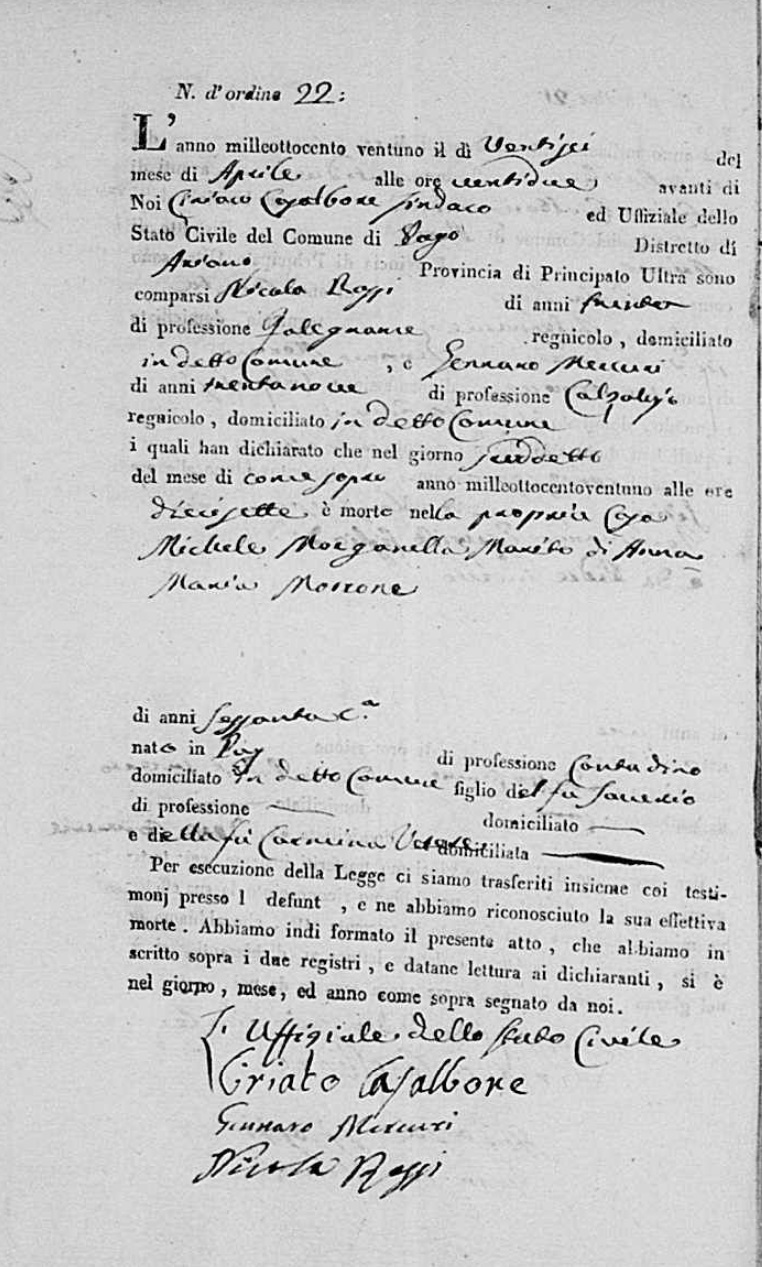 N. d'ordine 22:
L'anno milleottocento ventuno il dì Ventisei del
mese di Aprile alle ore ventidue avanti di
Noi Ciriaco Casalbore Sindaco ed Uffiziale dello
Stato Civile del Comune di Pago Distretto di
Ariano Provincia di Principato Ultra sono
comparsi Nicola Rossi di anni trenta
di professione Falegname regnicolo, domiciliato
in detto Comune, e Gennaro Mercuri
di anni trentanove di professione Calzolajo
regnicolo, domiciliato in detto Comune
i quali han dichiarato che nel giorno suddetto
del mese di come sopra anno milleottocentoventuno alle ore
diecisette è morto nella propria Casa
Michele Morganella Marito di Anna
Maria Morrone
di anni Sessanta c.a
nato in Pago di professione Contadino
domiciliato in detto Comune figlio del fu Saverio
di professione — domiciliato —
e della fu Carmina domiciliata —
Per esecuzione della Legge ci siamo trasferiti insieme coi testi-
monj presso l defunt , e ne abbiamo riconosciuto la sua effettiva
morte. Abbiamo indi formato il presente atto, che abbiamo in
scritto sopra i due registri, e datane lettura ai dichiaranti, si è
nel giorno, mese, ed anno come sopra segnato da noi.
L'Uffiziale dello Stato Civile
Ciriaco Casalbore
Gennaro Mercuri
Nicola Rossi